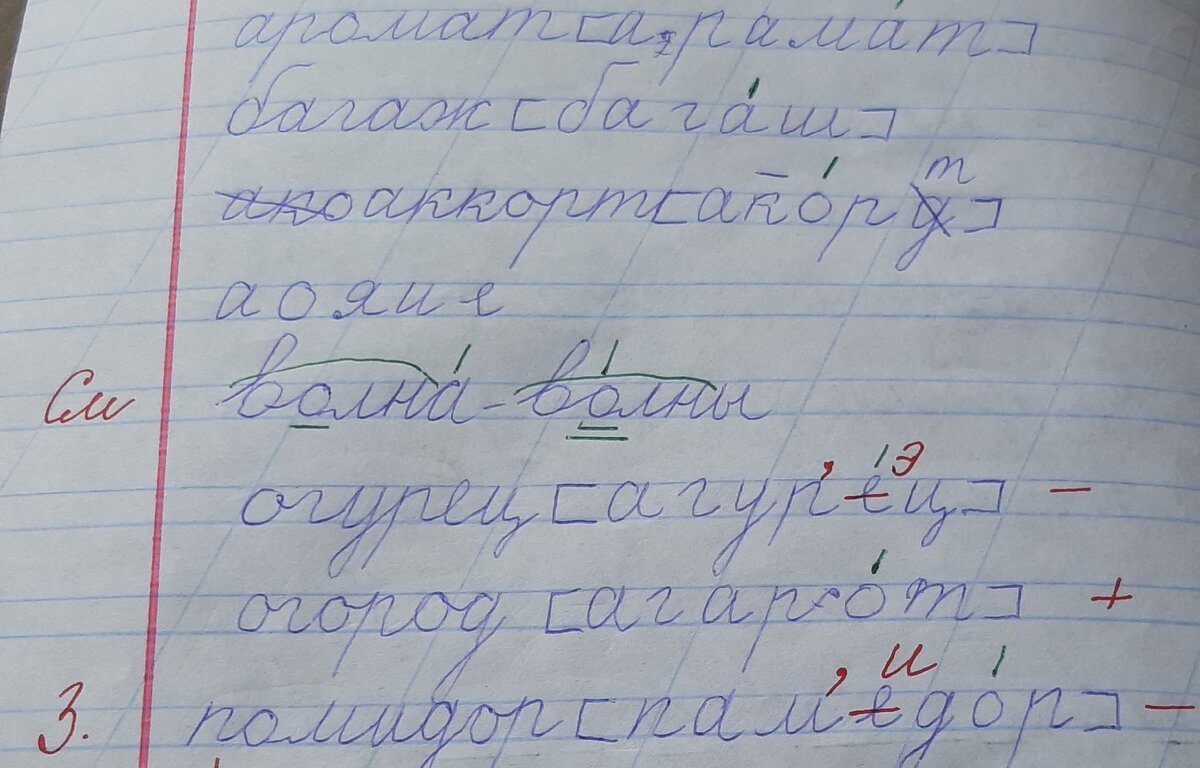 аромат [арама́т]
багаж [бага́ш]
ако аккорт [ак̄о́рт]
а о я и е
См волна́ - во́лны
огурец [агур'э́ц] -
огород [агаро́т] +
3. помидор [пам'идо́р] -